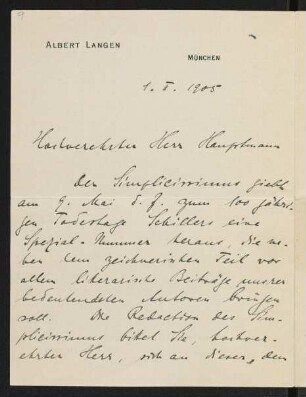 ALBERT LANGEN
MÜNCHEN
1. II. 1905
Hochverehrter Herr Hauptmann
Der Simplicissimus giebt
am 9. Mai d. J. zum 100 jähri-
gen Todestage Schillers eine
Spezial-Nummer heraus, die ne-
ben dem zeichnerischen Teil vor
allem literarische Beiträge unsrer
bedeutendsten Autoren bringen
soll. Die Redaction des Sim-
plicissimus bittet Sie, hochver-
ehrter Herr, sich an dieser, dem